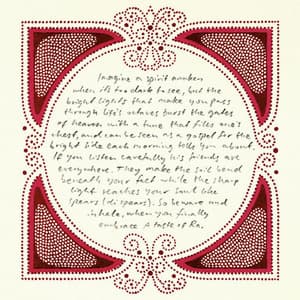 Imagine a spirit awaken
when it's too dark to see, but the
bright lights that make you pass
through life's waves burst the gates
of heaven with a tune that fills one's
chest, and can be seen as a gospel for the
bright side each morning tells you about.
If you listen carefully his friends are
everywhere. They make the soil bend
beneath your feet while the sharp
light reaches your soul like
spears (disperes). So beware and
inhale, when you finally
embrace A taste of Ra.